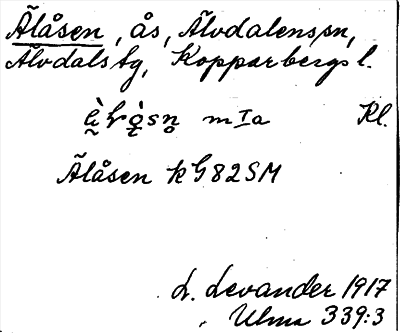 Ãlåsen, ås, Älvdalens sn,
Älvdals tg, Kopparbergs l.
mIa Kl.
Ãlåsen k G82SM
L. Levander 1917
Ulma 339:3